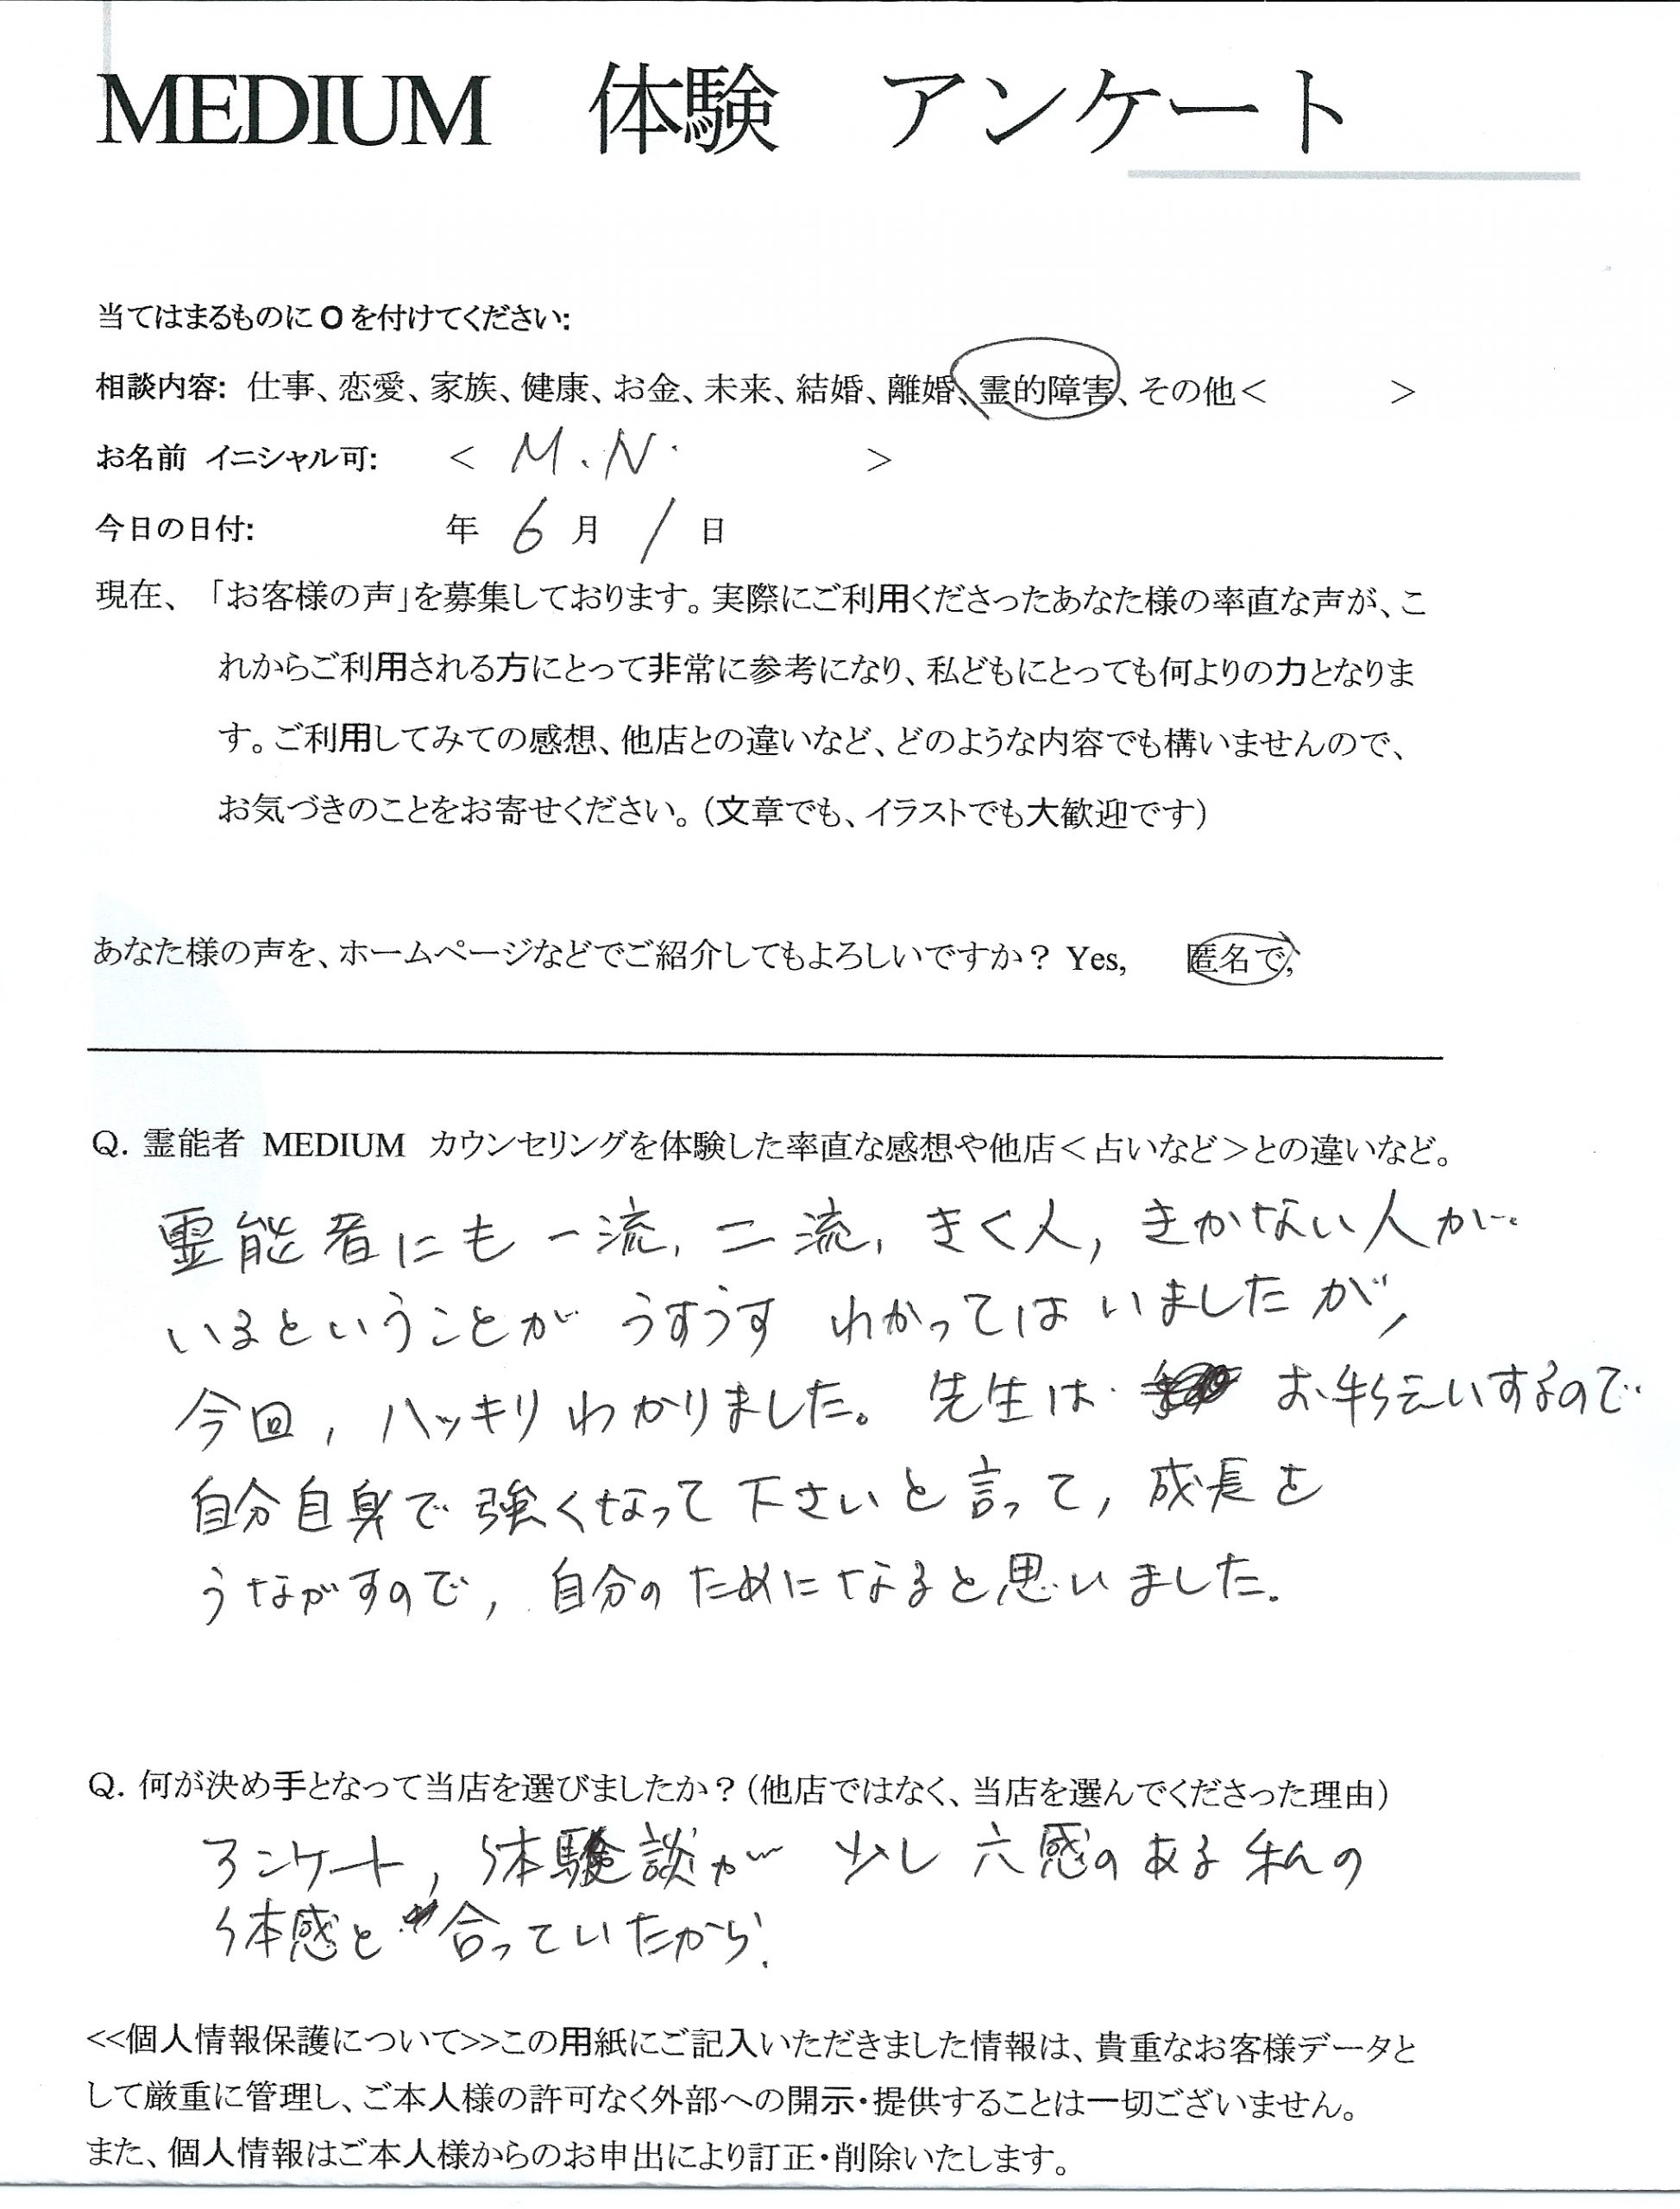 MEDIUM 体験 アンケート
当てはまるものに O を付けてください:
相談内容: 仕事、恋愛、家族、健康、お金、未来、結婚、離婚、霊的障害、その他< >
お名前 イニシャル可: < M.N. >
今日の日付: 年 6 月 1 日
現在、「お客様の声」を募集しております。実際にご利用くださったあなた様の率直な声が、こ
れからご利用される方にとって非常に参考になり、私どもにとっても何よりの力となりま
す。ご利用してみての感想、他店との違いなど、どのような内容でも構いませんので、
お気づきのことをお寄せください。(文章でも、イラストでも大歓迎です)
あなた様の声を、ホームページなどでご紹介してもよろしいですか? Yes, 匿名で,
Q. 霊能者 MEDIUM カウンセリングを体験した率直な感想や他店<占いなど>との違いなど。
霊能者にも一流, 二流, きく人, きかない人が
いるということが うすうす わかってはいましたが,
今回, ハッキリわかりました。先生は お手伝いするので
自分自身で強くなって下さいと言って, 成長を
うながすので, 自分のためになると思いました.
Q. 何が決め手となって当店を選びましたか?(他店ではなく、当店を選んでくださった理由)
アンケート, 体験談が 少し 六感のある私の
体感と合っていたから.
<<個人情報保護について>>この用紙にご記入いただきました情報は、貴重なお客様データと
して厳重に管理し、ご本人様の許可なく外部への開示・提供することは一切ございません。
また、個人情報はご本人様からのお申出により訂正・削除いたします。